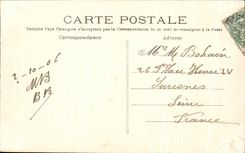 CARTE POSTALE
Tous les Pays étrangers n'acceptent pas la Correspondance au recto, se renseigner à la Poste
Correspondance
Adresse
2-10-06
MB
BB
Mme M. Bohain
26 Place Henri IV
Suresnes
Seine
France